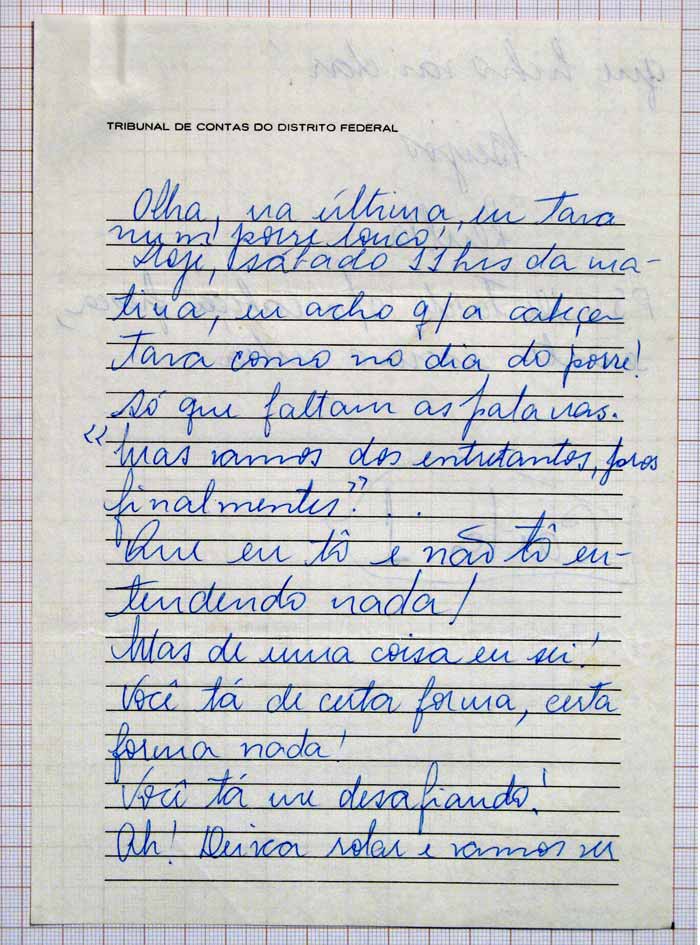 TRIBUNAL DE CONTAS DO DISTRITO FEDERAL
Olha, na última, eu tava
num porre louco!
Hoje, sábado 11hrs da ma-
tina, eu acho q/ a cabeça
tava como no dia do porre!
Só que faltam as palavras.
"Mas vamos dos entretantos, pros
finalmentes"? . .
Que eu tô e não tô en-
tendendo nada!
Mas de uma coisa eu sei!
Você tá de certa forma, certa
forma nada!
Você tá me desafiando!
Ah! Deixa rolar e vamos ver